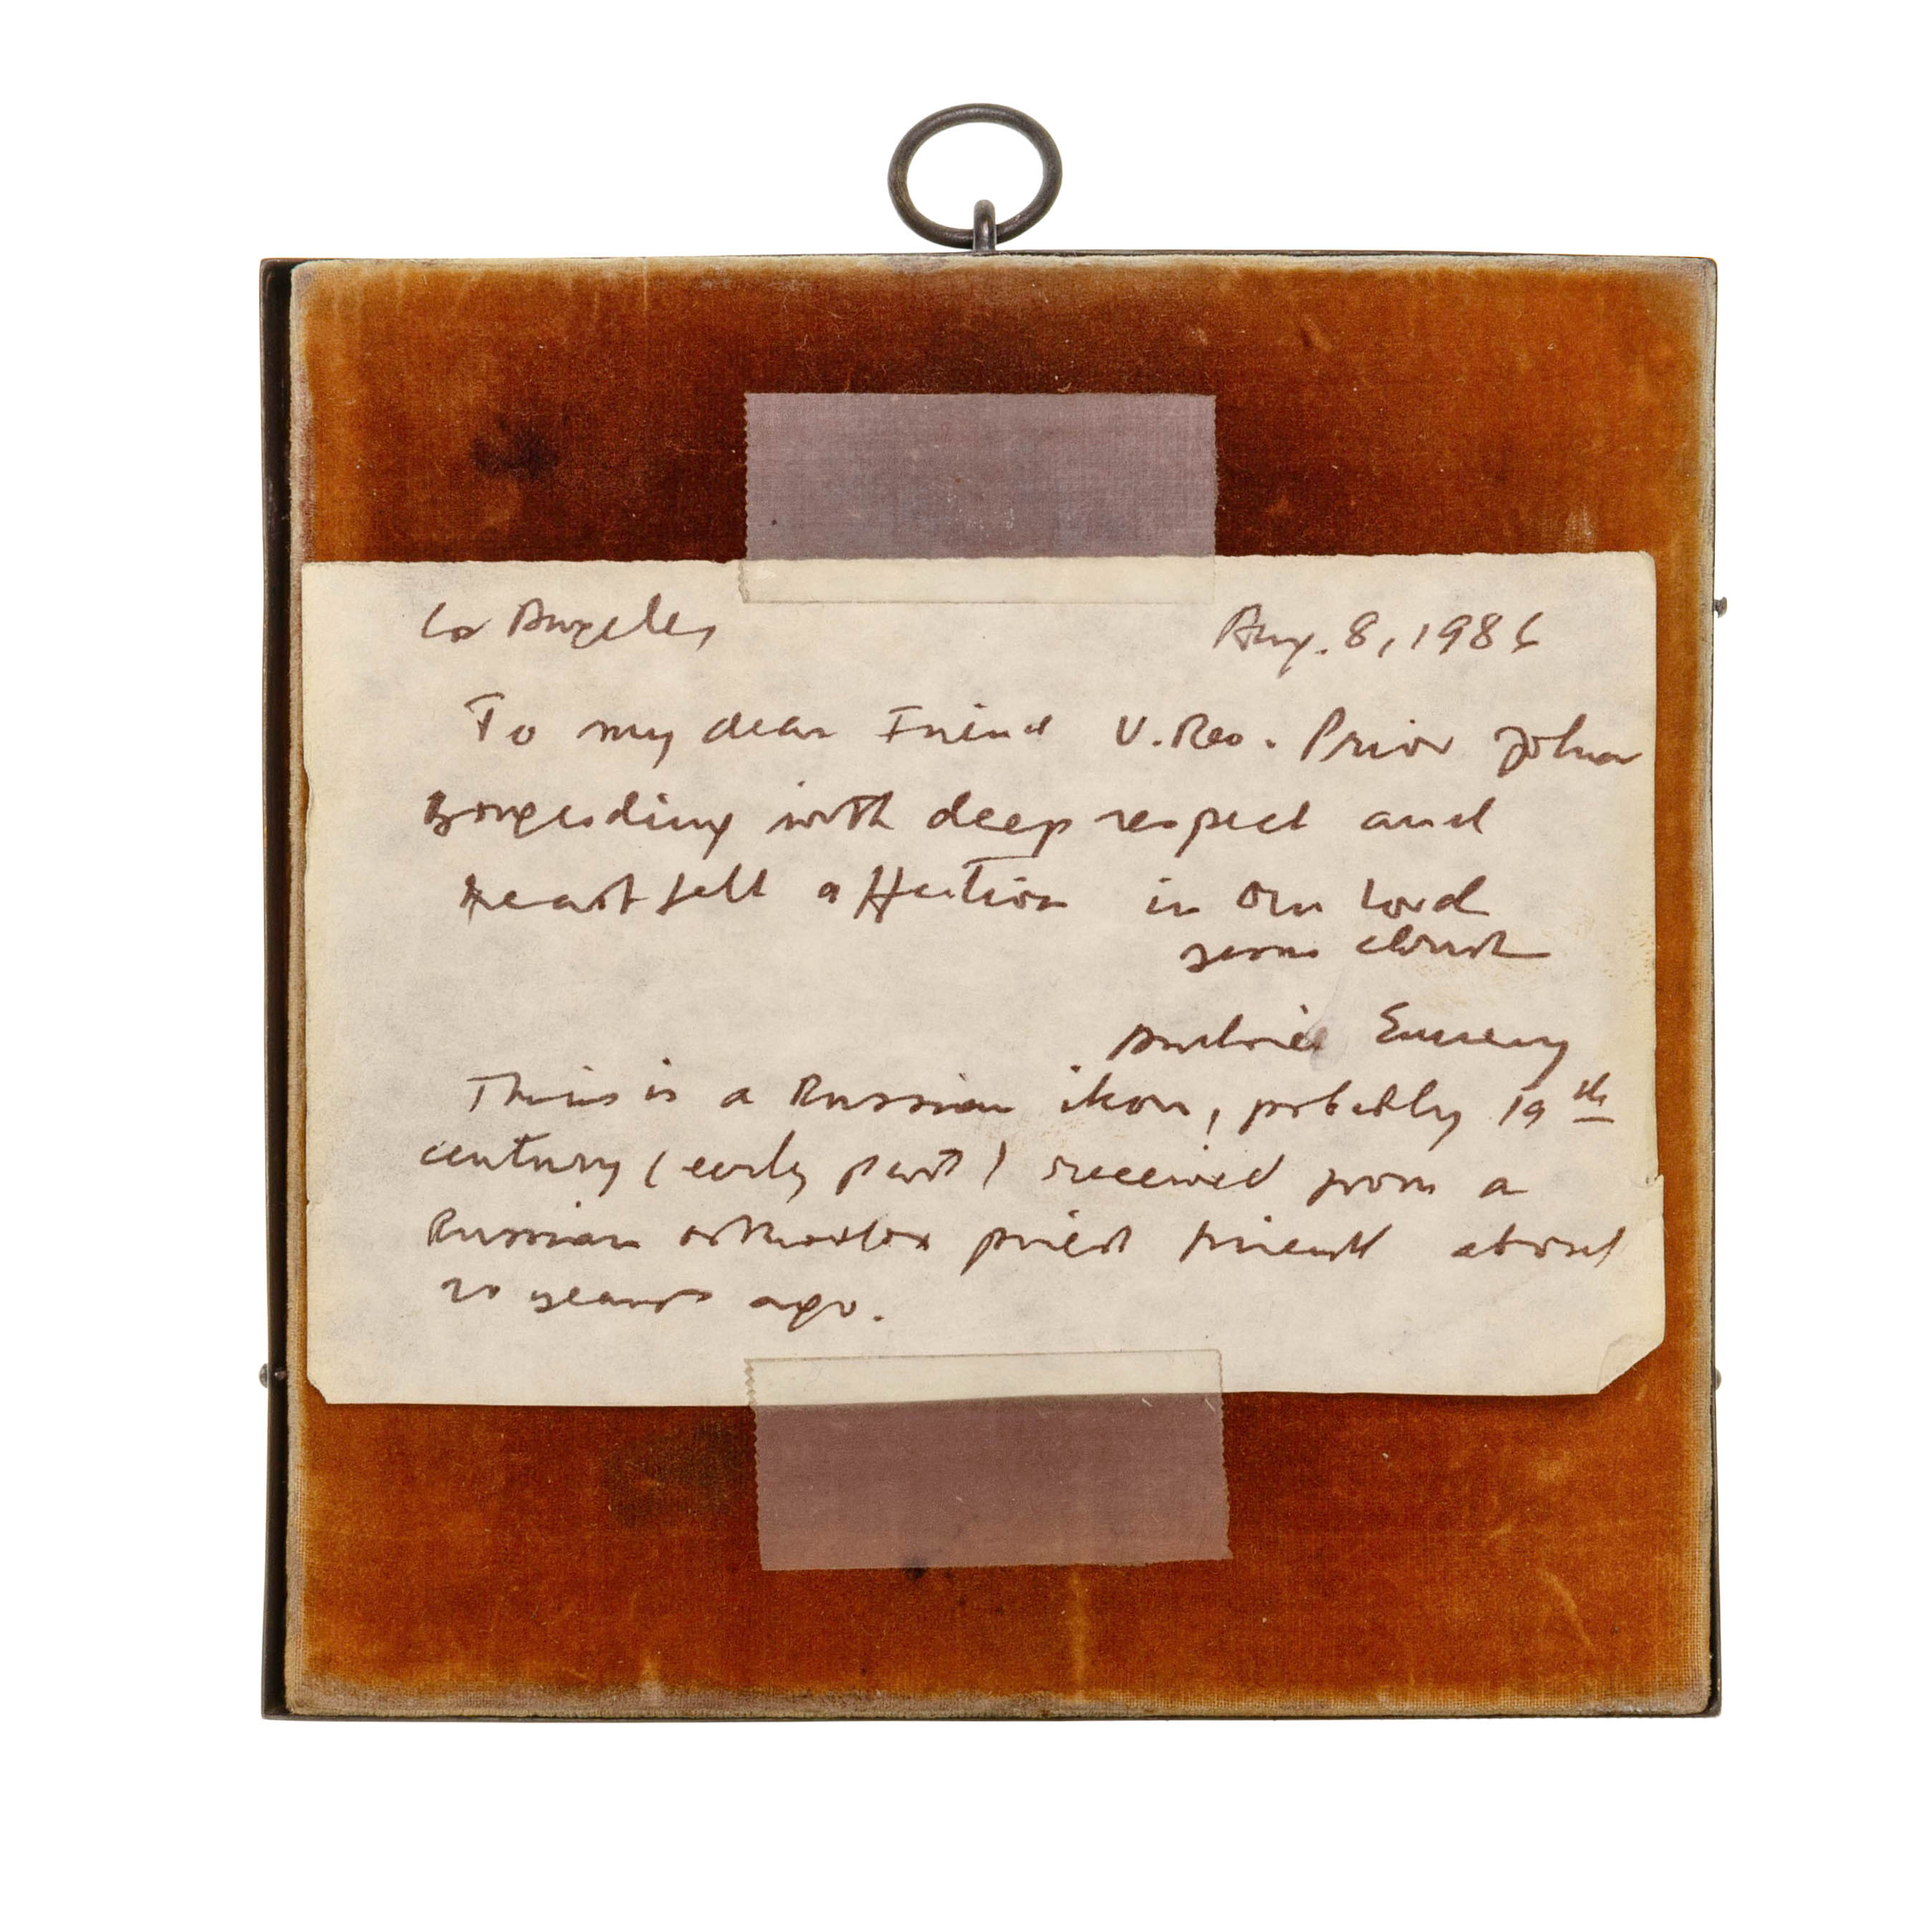 Los Angeles Aug. 8, 1986
To my dear Friend V. Rev. Prior John
Borgerding with deep respect and
heartfelt affection in Our Lord
Jesus Christ
This is a Russian ikon, probably 19th
century (early part) received from a
Russian orthodox priest friend about
20 years ago.